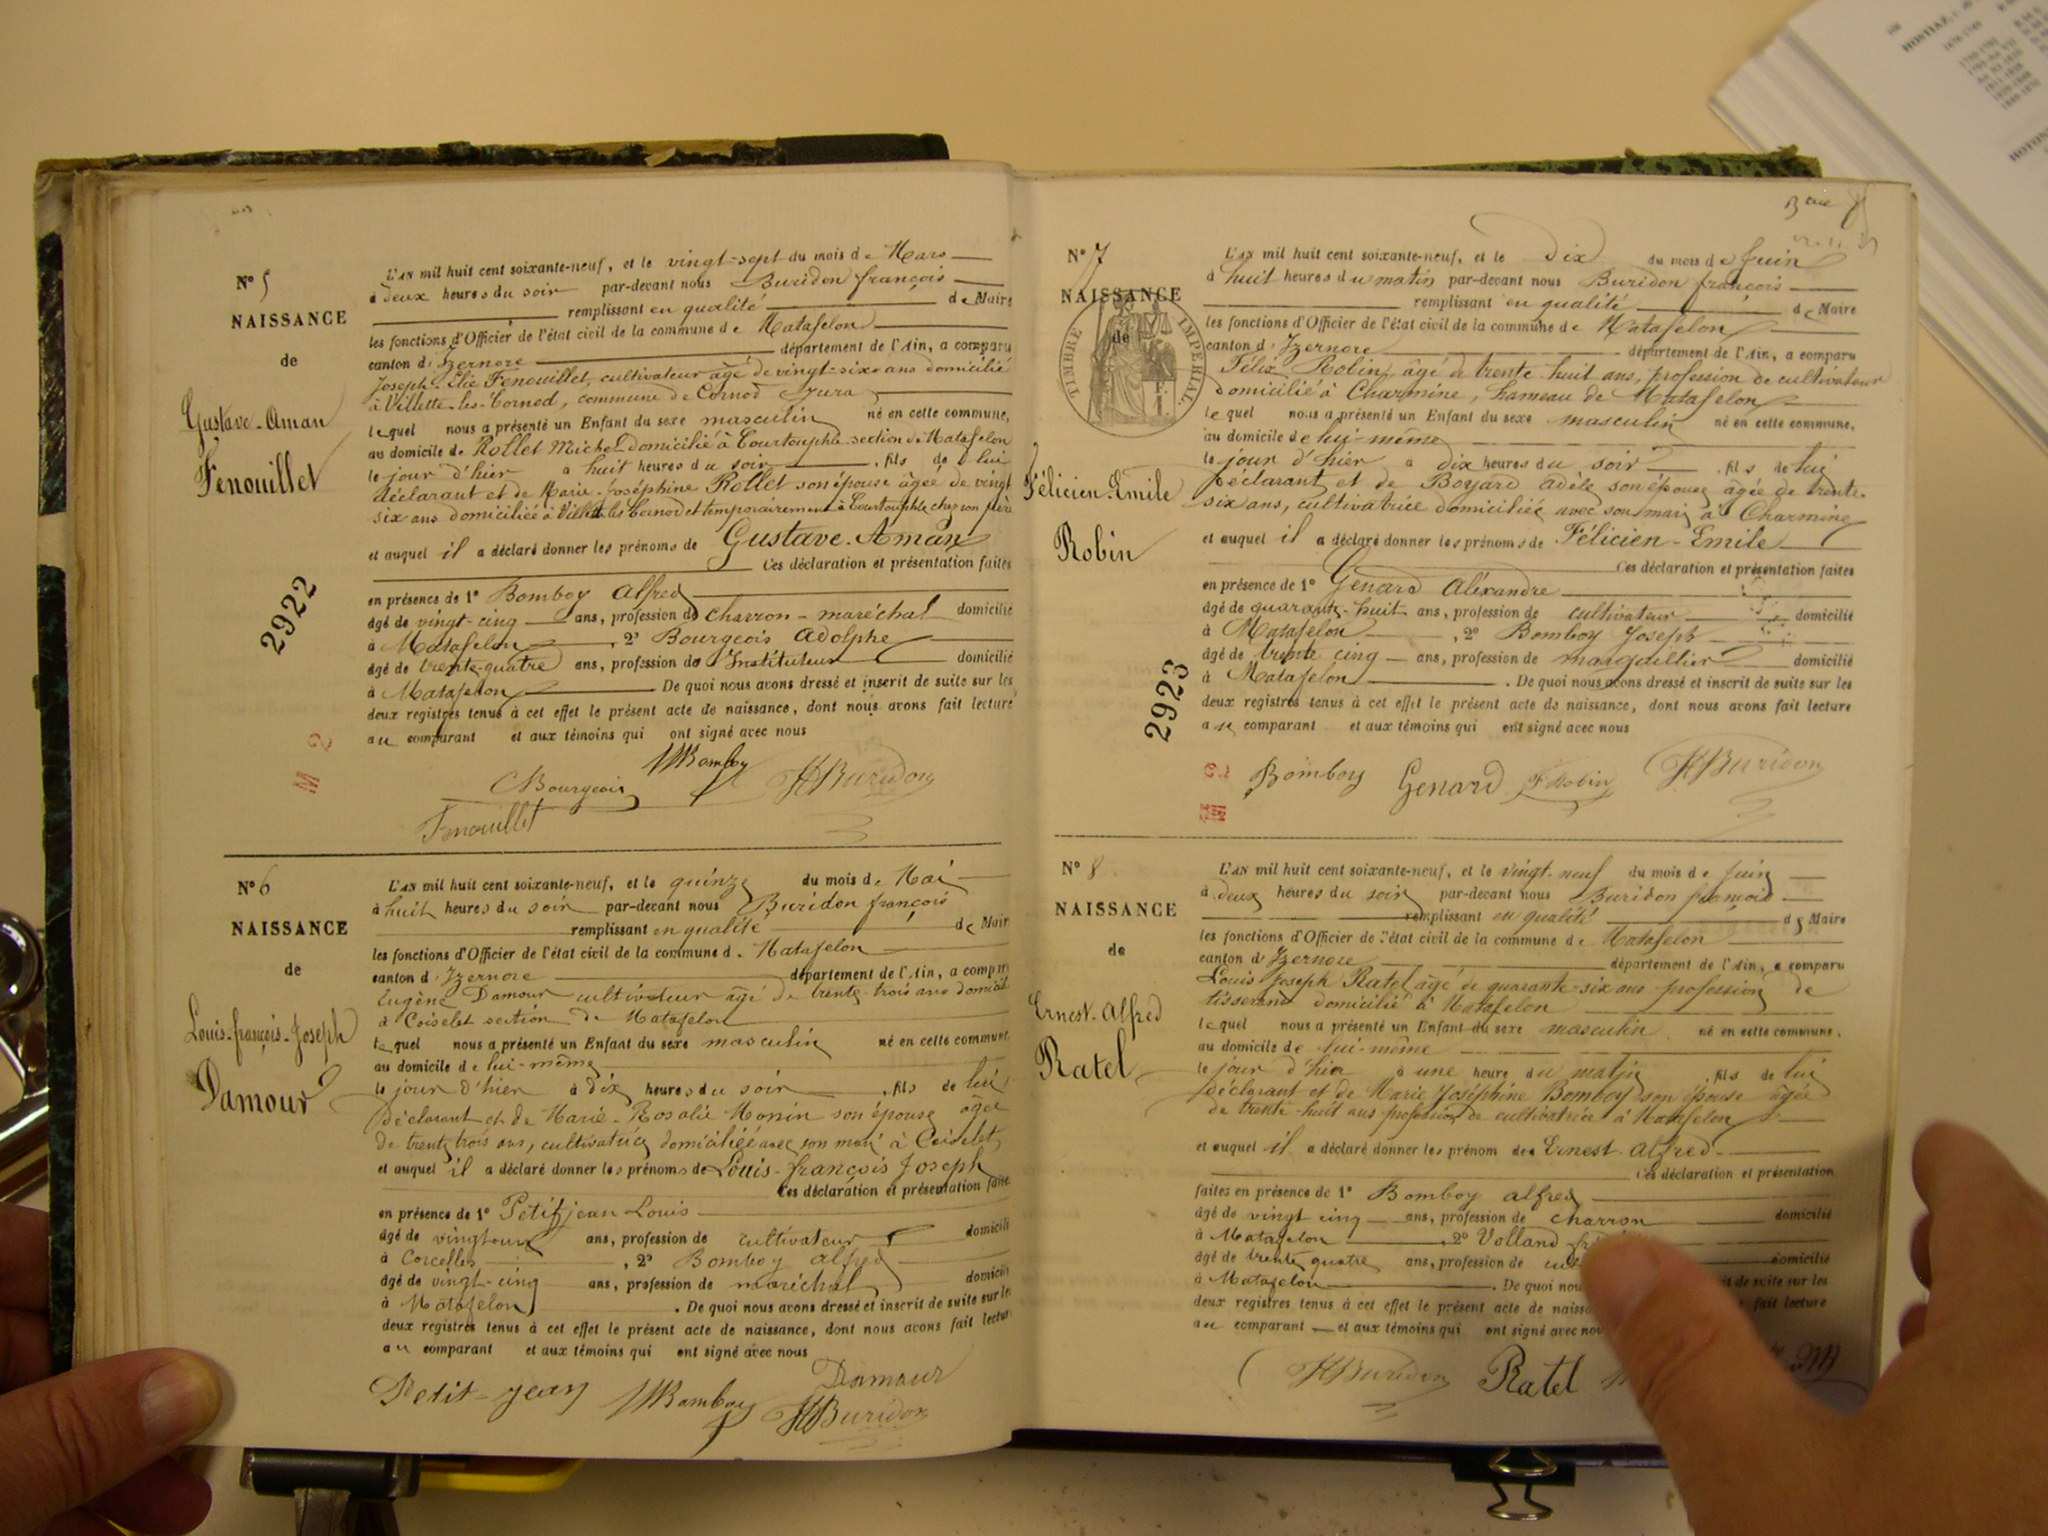 Nº 5
NAISSANCE
de
Gustave-Aman
Fenouillet
L'AN mil huit cent soixante-neuf, et le vingt-sept du mois de Mars
à deux heures du soir par-devant nous Buridon françois
remplissant en qualité de Maire
les fonctions d'Officier de l'état civil de la commune de Matafelon
canton d'Izernore département de l'Ain, a comparu
Joseph-Elie Fenouillet, cultivateur âgé de vingt-six ans domicilié
à Villette-les-Cornod, commune de Cornod Jura
lequel nous a présenté un Enfant du sexe masculin né en cette commune,
au domicile de Rollet Michel domicilié à Courtouphle section de Matafelon
le jour d'hier à huit heures du soir, fils de lui
déclarant et de Marie-Joséphine Rollet son épouse âgée de vingt
six ans domiciliée à Villette les Cornod et temporairement à Courtouphle chez son père
et auquel il a déclaré donner les prénoms de Gustave-Aman
Ces déclaration et présentation faites
en présence de 1º Bomboy Alfred
âgé de vingt-cinq ans, profession de charron-maréchal domicilié
à Matafelon, 2º Bourgeois Adolphe
âgé de trente-quatre ans, profession de Instituteur domicilié
à Matafelon De quoi nous avons dressé et inscrit de suite sur les
deux registres tenus à cet effet le présent acte de naissance, dont nous avons fait lecture
au comparant et aux témoins qui ont signé avec nous
2922
Bomboy
Bourgeois Buridon
Fenouillet
Nº 6
NAISSANCE
de
Louis-françois-Joseph
Damour
L'AN mil huit cent soixante-neuf, et le quinze du mois de Mai
à huit heures du soir par-devant nous Buridon françois
remplissant en qualité de Mair
les fonctions d'Officier de l'état civil de la commune d. Matafelon
canton d'Izernore département de l'Ain, a comparu
Eugène Damour cultivateur âgé de trente-trois ans domicilié
à Coiselet section de Matafelon
lequel nous a présenté un Enfant du sexe masculin né en cette commune
au domicile de lui-même
le jour d'hier à dix heures du soir, fils de lui
déclarant et de Marie-Rosalie Monin son épouse âgée
de trente trois ans, cultivatrice domiciliée avec son mari à Coiselet
et auquel il a déclaré donner les prénoms de Louis-françois Joseph
Ces déclaration et présentation faites
en présence de 1º Petitjean Louis
âgé de ans, profession de cultivateur domicili
à Corcelles, 2º Bomboy Alfred
âgé de vingt-cinq ans, profession de maréchal domicili
à Matafelon. De quoi nous avons dressé et inscrit de suite sur les
deux registres tenus à cet effet le présent acte de naissance, dont nous avons fait lectur
au comparant et aux témoins qui ont signé avec nous
Damour
Petit-jean Bomboy Buridon
Nº 7
NAISSANCE
de
TIMBRE IMPERIAL
Félicien-Emile
Robin
L'AN mil huit cent soixante-neuf, et le dix du mois de Juin
à huit heures du matin par-devant nous Buridon françois
remplissant en qualité de Maire
les fonctions d'Officier de l'état civil de la commune de Matafelon
canton d'Izernore département de l'Ain, a comparu
Félix Robin, âgé de trente huit ans, profession de cultivateur
domicilié à Charmine, hameau de Matafelon
lequel nous a présenté un Enfant du sexe masculin né en cette commune,
au domicile de lui-même
le jour d'hier à dix heures du soir, fils de lui
déclarant et de Boyard Adèle son épouse âgée de trente-
six ans, cultivatrice domiciliée avec son mari à Charmine
et auquel il a déclaré donner les prénoms de Félicien-Emile
Ces déclaration et présentation faites
en présence de 1º Genard Aléxandre
âgé de quarante-huit ans, profession de cultivateur domicilié
à Matafelon, 2º Bomboy Joseph
âgé de trente cinq ans, profession de marguillier domicilié
à Matafelon. De quoi nous avons dressé et inscrit de suite sur les
deux registres tenus à cet effet le présent acte de naissance, dont nous avons fait lecture
au comparant et aux témoins qui ont signé avec nous
2923
Bomboy Genard F Robin Buridon
Nº 8
NAISSANCE
de
Ernest-Alfred
Ratel
L'AN mil huit cent soixante-neuf, et le vingt-neuf du mois de Juin
à deux heures du soir par-devant nous Buridon françois
remplissant en qualité de Maire
les fonctions d'Officier de l'état civil de la commune de Matafelon
canton d'Izernore département de l'Ain, a comparu
Louis Joseph Ratel âgé de quarante-six ans profession de
tisserand domicilié à Matafelon
lequel nous a présenté un Enfant du sexe masculin né en cette commune.
au domicile de lui-même
le jour d'hier à une heure du matin, fils de lui
déclarant et de Marie Joséphine Bomboy son épouse âgée
de trente-huit ans profession de cultivatrice à Matafelon
et auquel il a déclaré donner les prénom de Ernest-Alfred
Ces déclaration et présentation
faites en présence de 1º Bomboy Alfred
âgé de vingt cinq ans, profession de charron domicilié
à Matafelon, 2º Volland
âgé de trente quatre ans, profession de domicilié
à Matafelon. De quoi nou de suite sur les
deux registres tenus à cet effet le présent acte de naissa fait lecture
au comparant et aux témoins qui ont signé avec nou
Buridon Ratel